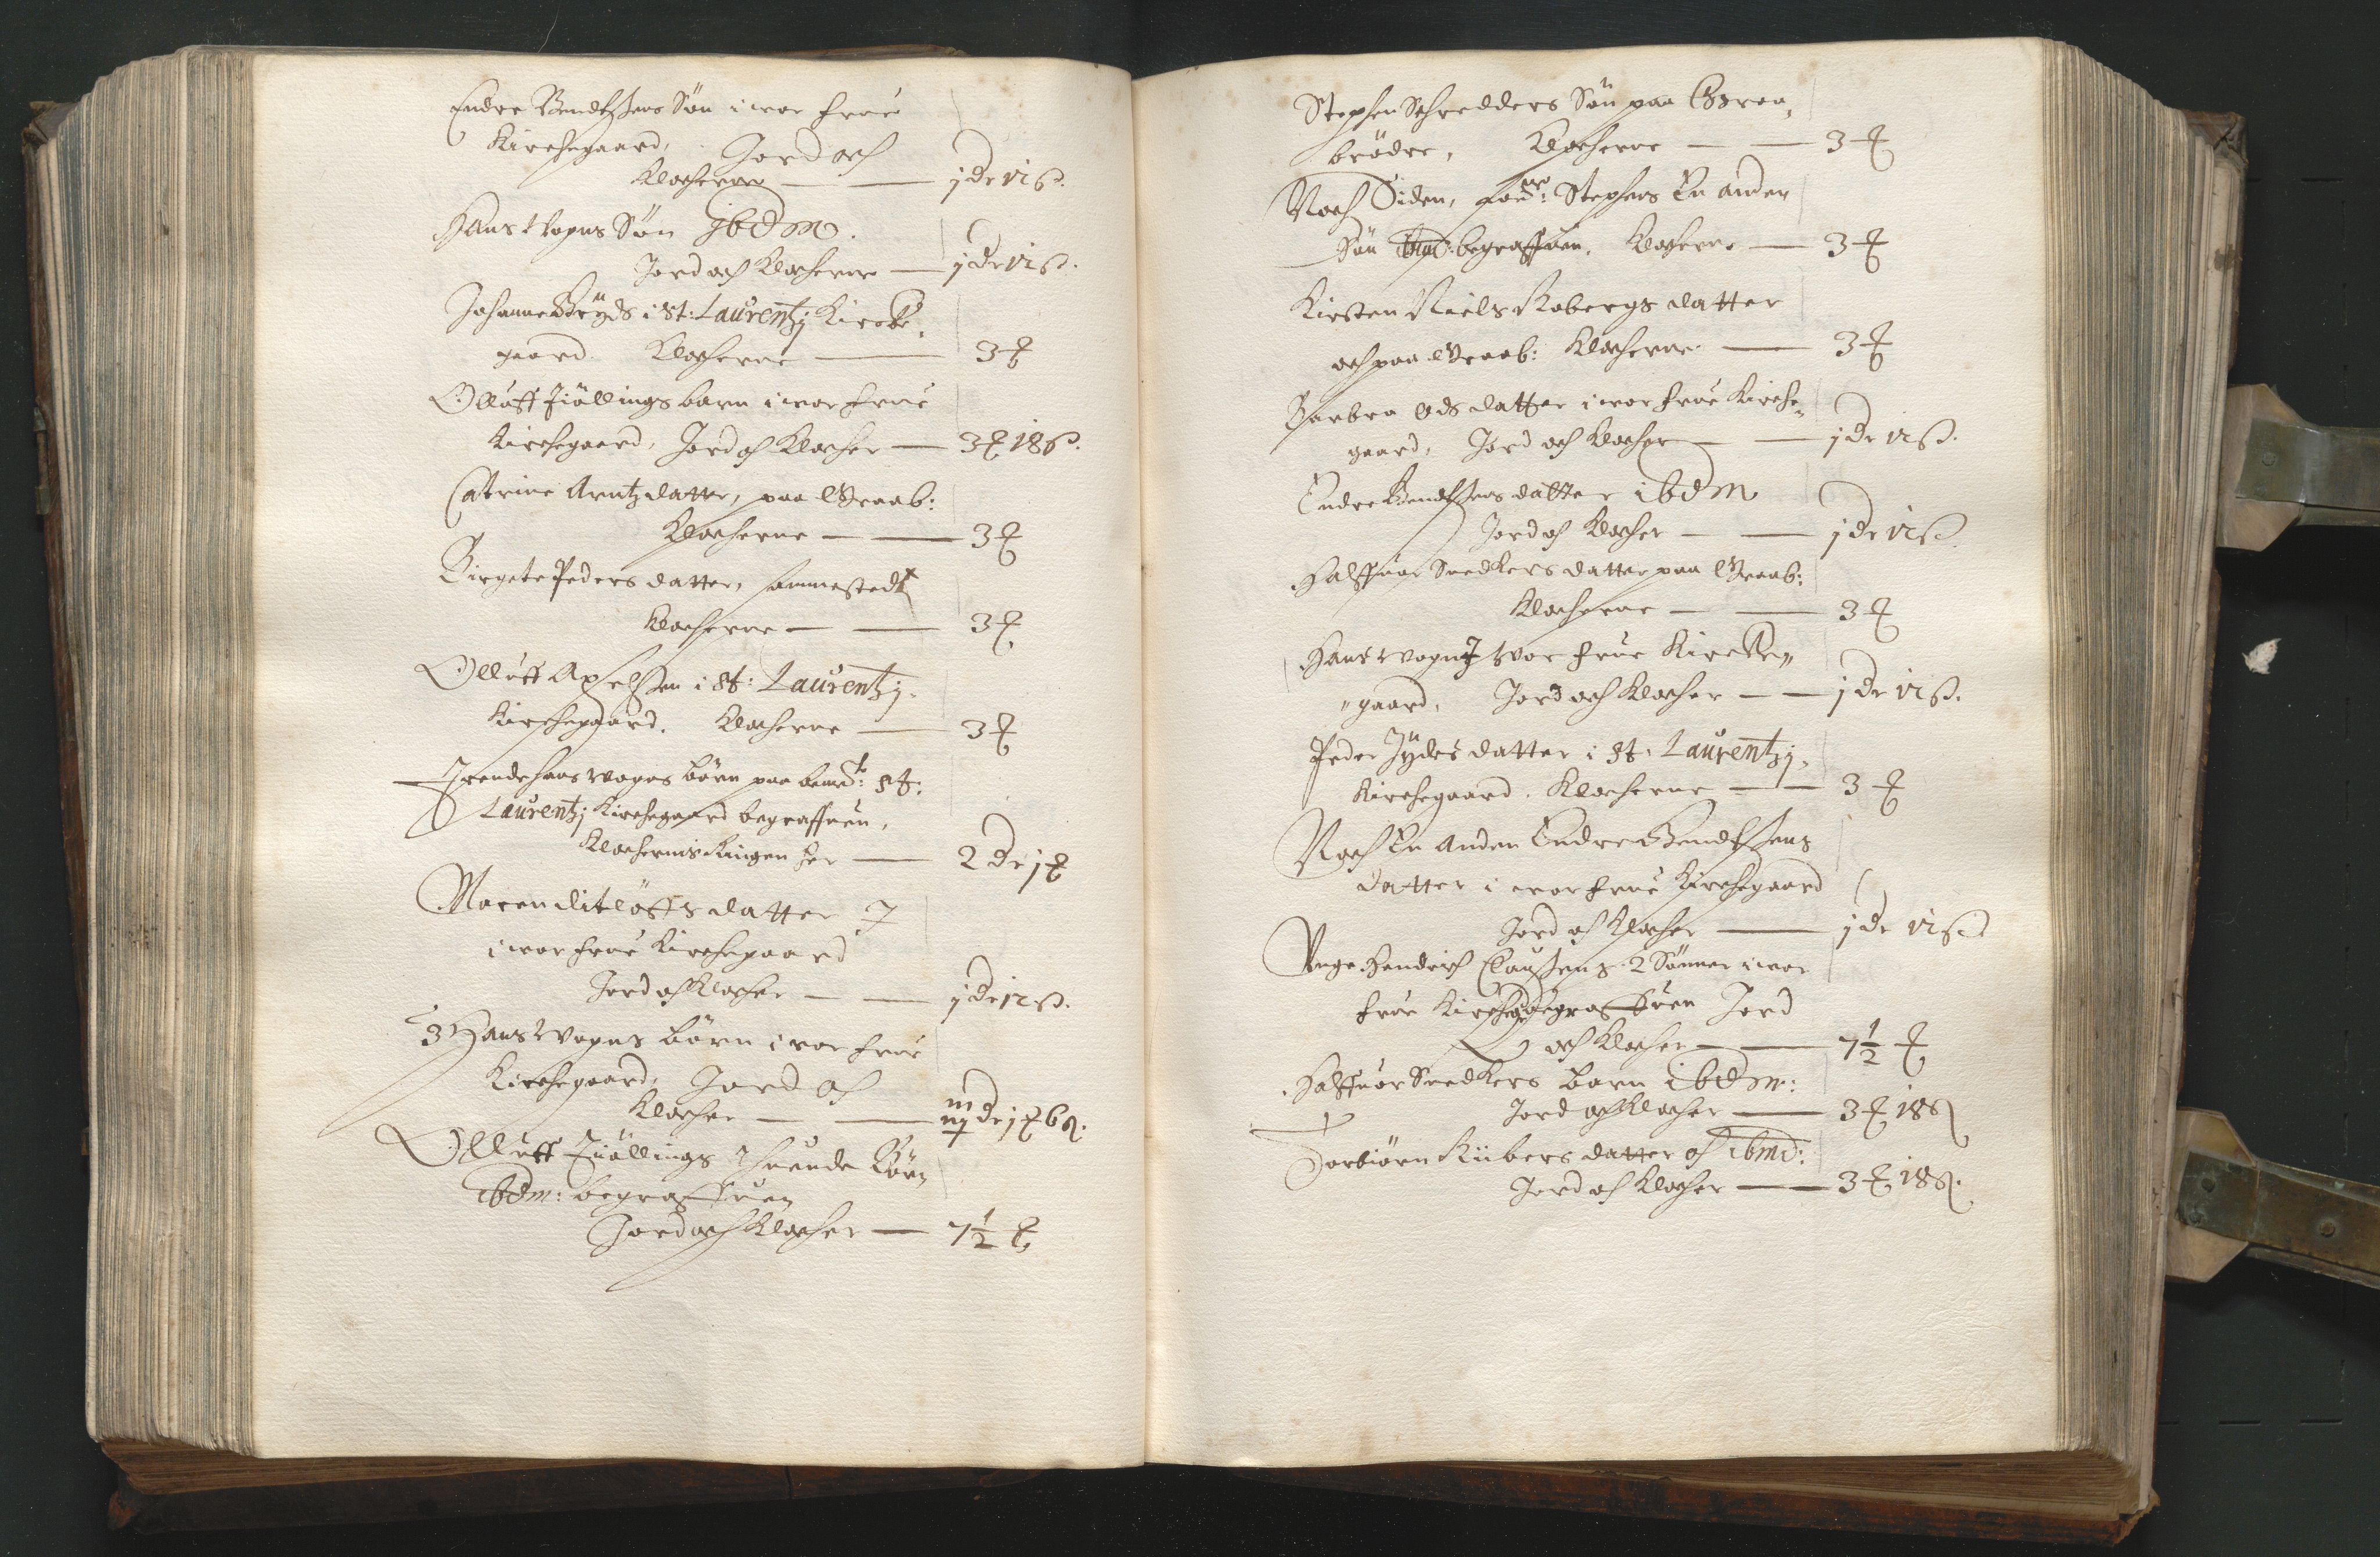 Endre Bendtsens Søn i wor Frue
Kirchegaard, Jord och
Klocherne — — j dr vi ß.
Hans Wogns Søn Ibdm.
Jord och Klocherne — j dr vi ß.
Johanne Bryds i St: Laurentzj Kircke,
gaard. Klocherne — 3 ₰
Olluff Fiällings barn i wor Frue
Kirchegaard, Jord och Klocher — 3 ₰ 18 ß.
Catrine Arntz datter, paa Graab:
Klocherne — — 3 ₰
Birgete Peders datter, sammestedt
Klocherne — — 3 ₰
Olluff Axelssen i St: Laurentzj.
Kirchegaard. Klocherne — 3 ₰
Trende Hans Wogns börn paa bemdt: St:
Laurentzj Kirchegaard begraffuen,
Klochernis Ringen for — 2 dr j ₰
Maren Ditlöffs datter
i wor Frue Kirchegaard
Jord och Klocher — — j dr vi ß.
3 Hans Wogns börn i wor Frue
Kirchegaard, Jord och
Klocher — — dr j ₰ 6 ß.
Olluff Fiällings Thuende Börn
Ibdm: begraffuen
Jord och Klocher — 7 1/2 ₰
Stephen Schredders Søn paa Graa,
brödre, Klocherne — — 3 ₰
Noch Siden, Stephens En anden
Søn begraffuen. Klocherne — 3 ₰
Kirsten Niels Robergs datter
och paa Graab: Klocherne — 3 ₰
Barbra Ods datter i wor Frue Kirche,
gaard, Jord och Klocher — — j dr vi ß.
Endre Bendtsens datter ibdm
Jord och Klocher — — j dr vi ß.
Halffuor Snedkers datter paa Graab:
Klocherne — — 3 ₰
Hans Wogns I Wor Frue Kircke„
„gaard, Jord och Klocher — — j dr vi ß.
Peder Jydes datter i St. Laurentzj.
Kirchegaard. Klocherne — — 3 ₰
Noch En Anden Endre Bendtsens
datter i wor Frue Kirchegaard
Jord och Klocher — j dr vi ß
Unge Hendrich Claussens 2 Sønner i wor
Frue Kircheg: begraffuen Jord
och Klocher — — 7 1/2 ₰
Halffuor Snedkers barn ibdm:
Jord och Klocher — 3 ₰ 18 ß
Torbiörn Kiibers datter och ibmd:
Jord och Klocher — 3 ₰ 18 ß.